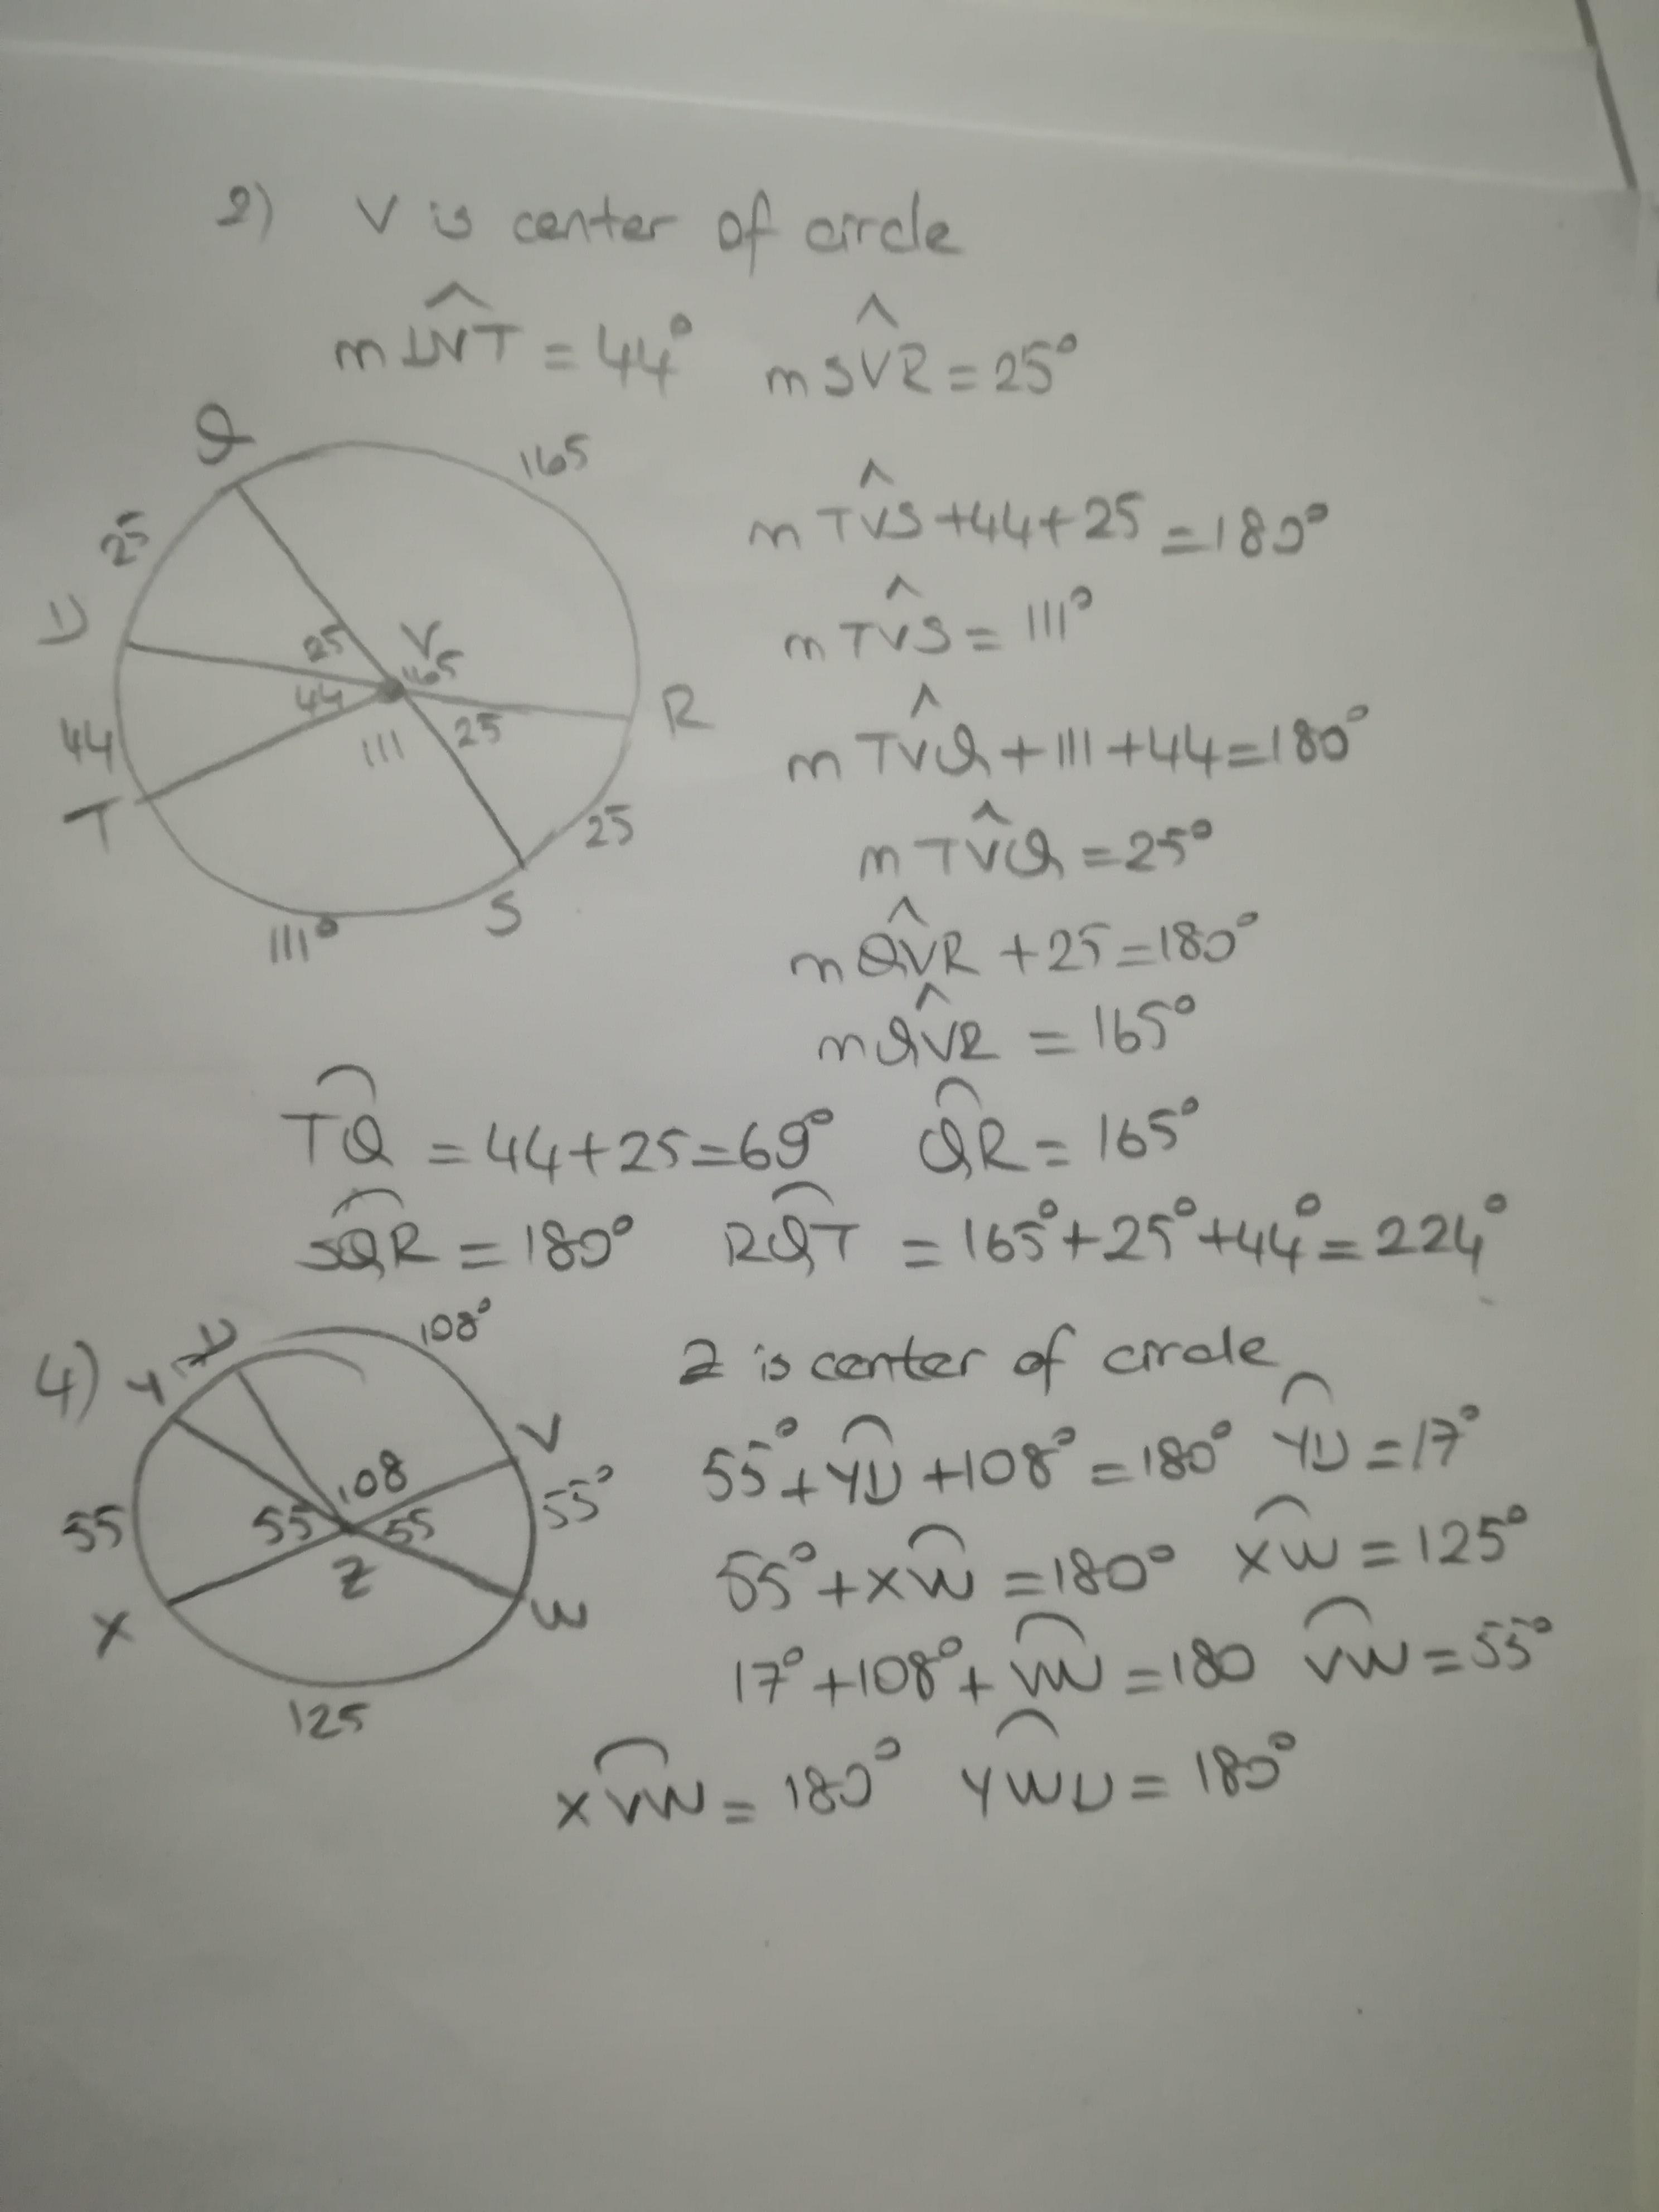 2) V is center of circle
m UV̂T = 44° m SV̂R = 25°
Q 165
25
U 25 V 165
44
44 R
111 25
T 25
S
111°
m TV̂S + 44 + 25 = 180°
m TV̂S = 111°
m TV̂Q + 111 + 44 = 180°
m TV̂Q = 25°
m QV̂R + 25 = 180°
m QV̂R = 165°
TQ = 44 + 25 = 69° QR = 165°
SQR = 180° RQT = 165° + 25° + 44° = 224°
4) Y U 108°
V
108
55 55 55 55°
Z
X W
125
Z is center of circle
55° + YU + 108° = 180° YU = 17°
55° + XW = 180° XW = 125°
17° + 108° + VW = 180 VW = 55°
XVW = 180° YWU = 180°